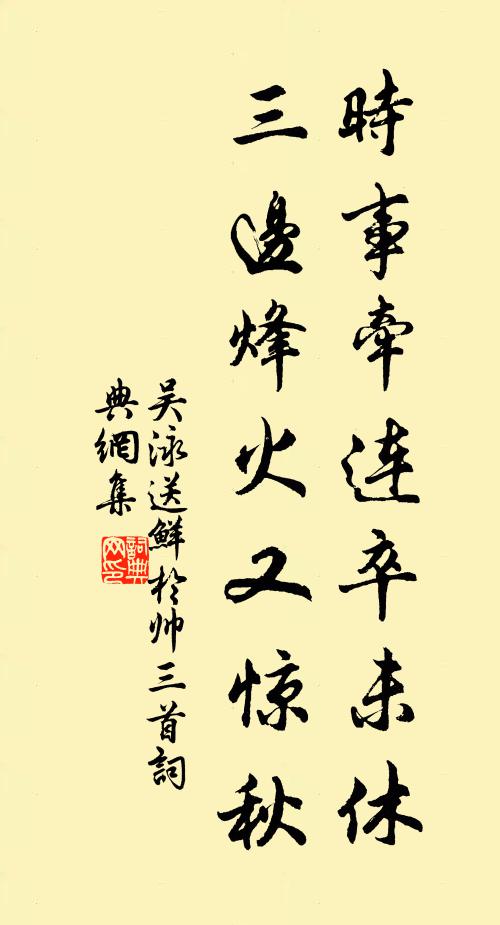 時事牽連卒未休
三邊烽火又惊秋
吴泳送鮮於帅三首詞
典網集
詞典
网印